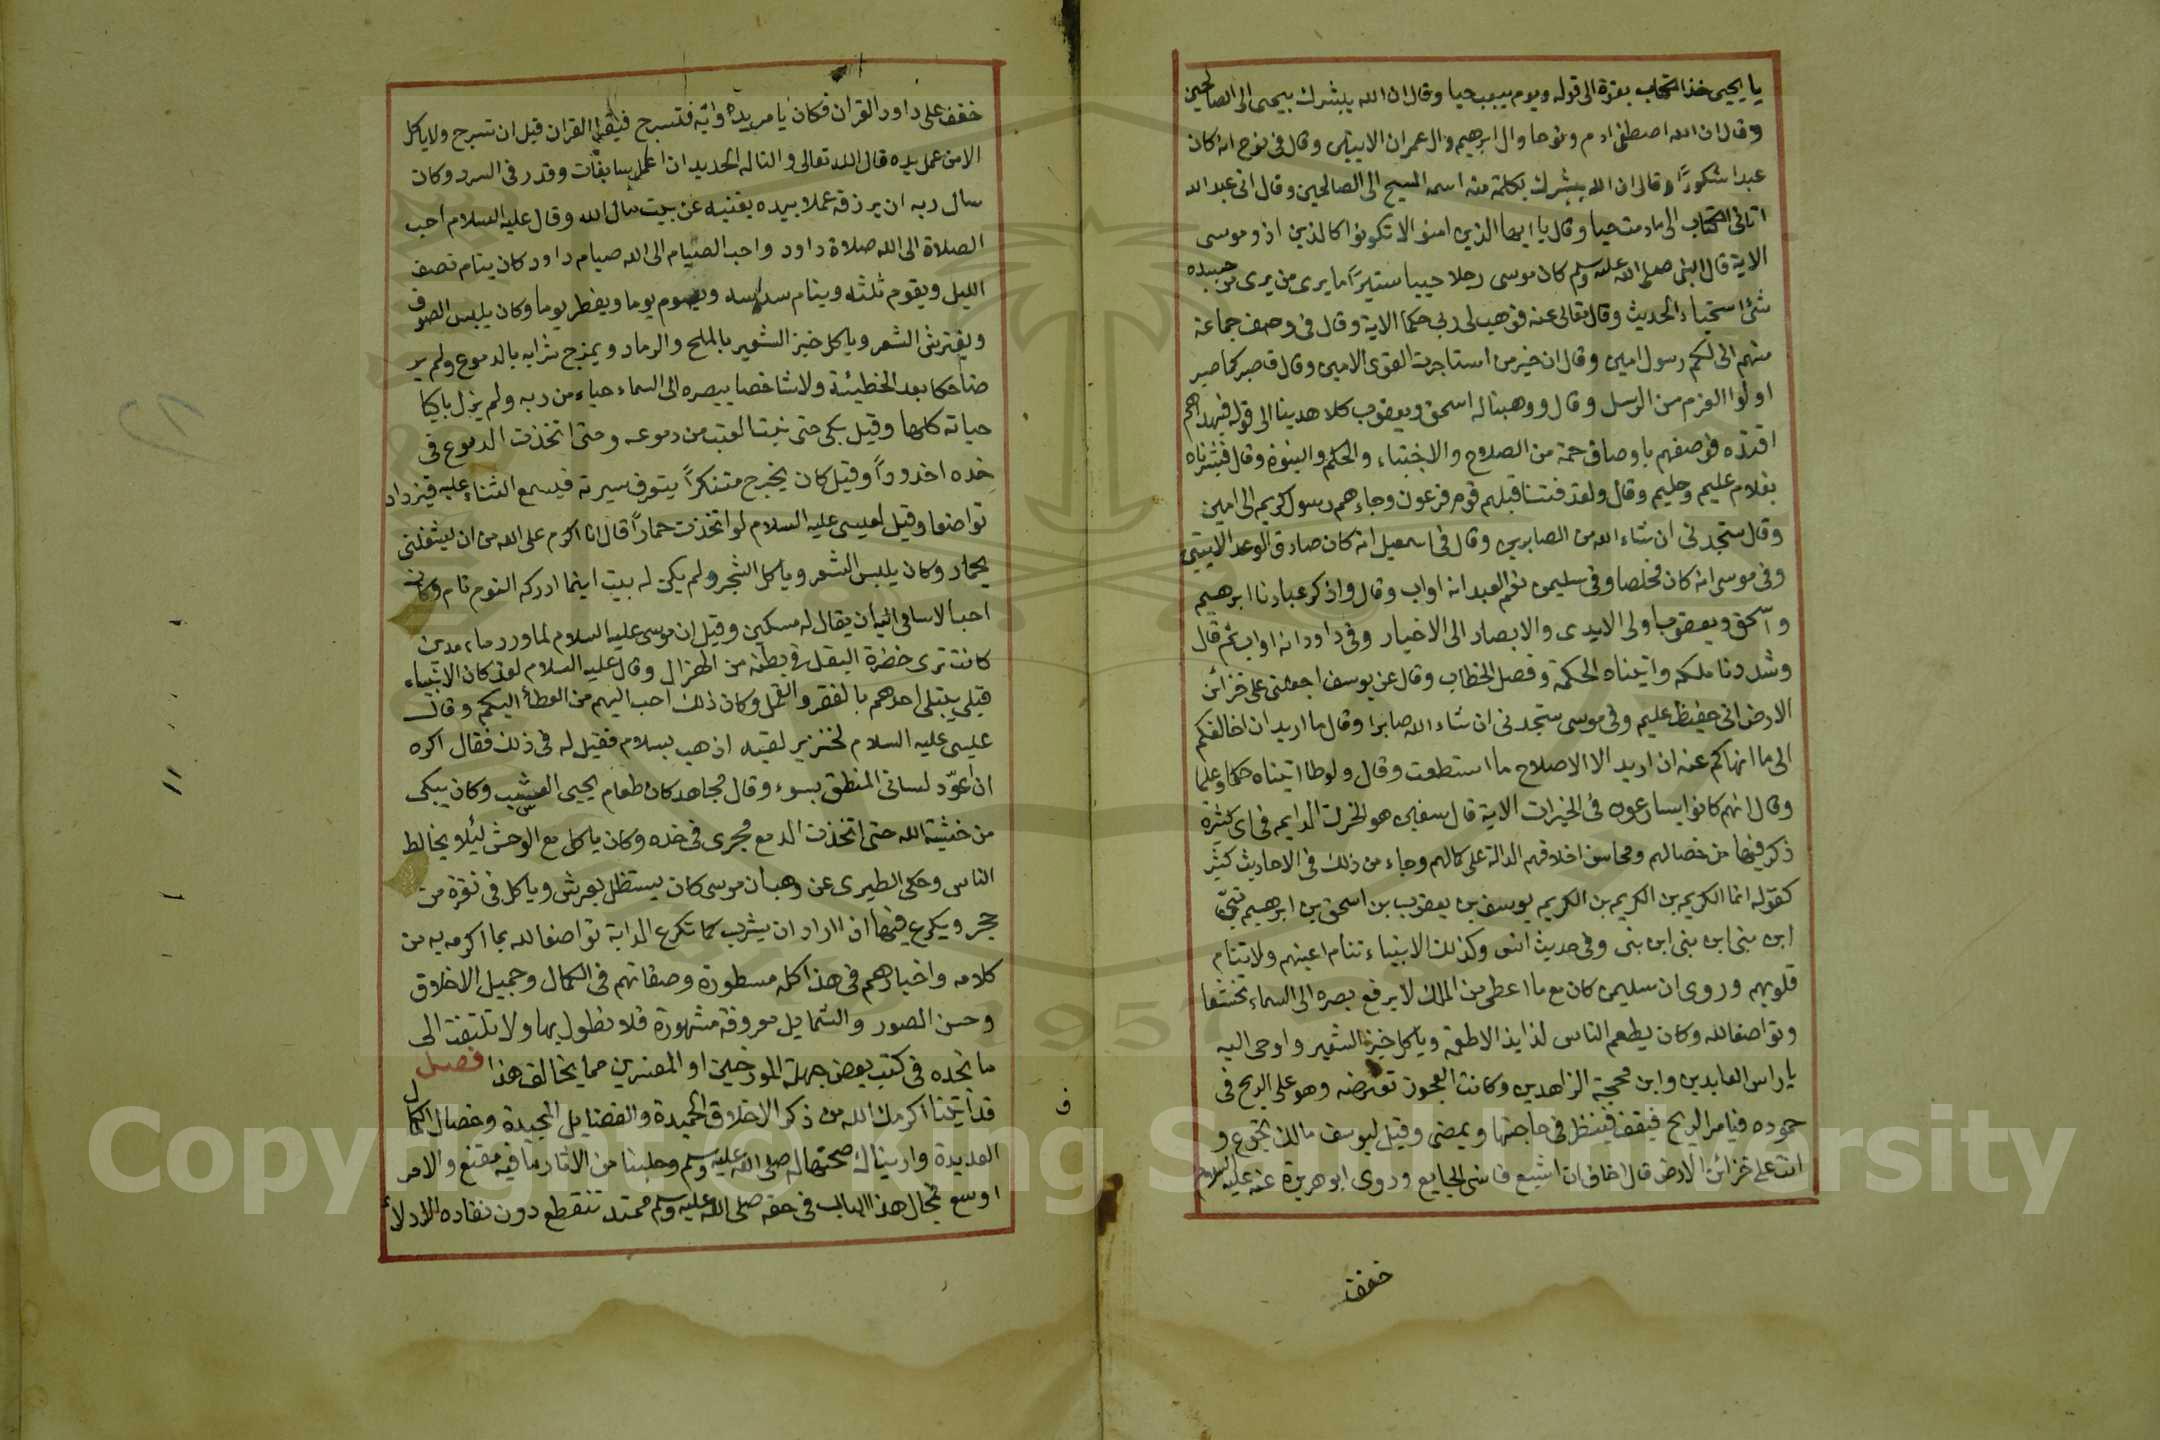 يا يحيى خذ الكتاب بقوة الى قوله ويوم يبعث حيا وقال ان الله يبشرك بيحيى الى الصالحين
وقال ان الله اصطفى ادم ونوحا وال ابرهيم وال عمران الايتين وقال في نوح انه كان
عبدا شكورًا وقال ان الله يبشرك بكلمة منه اسمه المسيح الى الصالحين وقال اني عبد الله
اتاني الكتاب الى مادمت حيا وقال يا ايها الذين امنوا لا تكونوا كالذين اذوموسى
الاية قال النبي صلى الله عليه وسلم كان موسى رجلا حييا ستيرًا ما يرى من جسده
شئ استحياء الحديث وقال تعالى عنه فوهب لي ربي حكما الاية وقال في وصف جماعة
منهم اني لكم رسول امين وقال ان خير من استاجرت القوى الامين وقال فاصبر كما صبر
اولوا العزم من الرسل وقال ووهبنا له اسحق ويعقوب كلا هدينا الى قوله فبهداهم
اقتده فوصفهم باوصاف جمة من الصلاح والاجتباء والحكم والنبوة وقال فبشرناه
بغلام عليم وحليم وقال ولقد فتنا قبلهم قوم فرعون وجاءهم رسول كريم الى امين
وقال ستجدني ان شاء الله من الصابرين وقال في اسمعيل انه كان صادق الوعد الايتين
وفي موسى انه كان مخلصا وفي سليمن نعم العبد انه اواب وقال واذكر عبادنا ابرهيم
واسحق ويعقوب اولى الايدى والابصار الى الاخيار وفي داود انه اواب ثم قال
وشددنا ملكه واتيناه الحكمة وفصل الخطاب وقال عن يوسف اجعلني على خزائن
الارض اني حفيظ عليم وفي موسى ستجدني ان شاء الله صابرا وقال ما اريد ان اخالفكم
الى ما انهاكم عنه ان اريد الا الاصلاح ما استطعت وقال ولوطا اتيناه حكما وعلما
وقال انهم كانوا يسارعون في الخيرات الاية قال سفين هو الحزن الدايم في اى كثيرة
ذكر فيها من خصالهم ومحاسن اخلاقهم الدالة على كمالهم وجاء من ذلك في الاحاديث كثير
كقوله انما الكريم بن الكريم بن الكريم يوسف بن يعقوب بن اسحق بن ابرهيم نبي
ابن نبي ابن نبي ابن نبي وفي حديث انس وكذلك الانبياء تنام اعينهم ولا تنام
قلوبهم وروى ان سليمن كان مع ما اعطى من الملك لا يرفع بصره الى السماء تخشعا
وتواضعا لله وكان يطعم الناس لذايذ الاطعمة وياكل خبز الشعير واوحى اليه
يا راس العابدين وابن محجة الزاهدين وكانت العجوز تعترضه وهو على الريح في
جنوده فيامر الريح فيقف فينظر في حاجتها ويمضى وقيل ليوسف مالك تجوع و
انت على خزائن الارض قال اخاف ان اشبع فانسى الجايع وروى ابو هريرة عنه عليه السلام
خفف
خفف على داود القران فكان يامر بدوابه فتسرج فيقرا القران قبل ان تسرج ولا ياكل
الا من عمل يده قال الله تعالى والنا له الحديد ان اعمل سابغات وقدر في السرد وكان
سال ربه ان يرزقه عملا بيده يغنيه عن بيت مال الله وقال عليه السلام احب
الصلاة الى الله صلاة داود واحب الصيام الى الله صيام داود كان ينام نصف
الليل ويقوم ثلثه وينام سدسه ويصوم يوما ويفطر يوما وكان يلبس الصوف
ويفترش الشعر وياكل خبز الشعير بالملح والرماد ويمزج شرابه بالدموع ولم ير
ضاحكا بعد الخطيئة ولا شاخصا ببصره الى السماء حياء من ربه ولم يزل باكيا
حياته كلها وقيل بكى حتى نبت العشب من دموعه وحتى اتخذت الدموع في
خده اخدودًا وقيل كان يخرج متنكرًا يتعرف سيرته فيسمع الثناء عليه فيزداد
تواضعا وقيل لعيسى عليه السلام لو اتخذت حمارًا قال انا اكرم على الله من ان يشغلني
بحمار وكان يلبس الشعر وياكل الشجر ولم يكن له بيت اينما ادركه النوم نام وكان
احب الاسامي اليه ان يقال له مسكين وقيل ان موسى عليه السلام لما ورد ماء مدين
كانت ترى خضرة البقل في بطنه من الهزال وقال عليه السلام لقد كان الانبياء
قبلي يبتلى احدهم بالفقر والقمل وكان ذلك احب اليهم من العطاء اليكم وقال
عيسى عليه السلام لخنزير لقيه اذهب بسلام فقيل له في ذلك فقال اكره
ان اعوّد لساني المنطق بسوء وقال مجاهد كان طعام يحيى العشب وكان يبكى
من خشية الله حتى اتخذت الدمع مجرى في خده وكان ياكل مع الوحش ليلا يخالط
الناس وحكى الطبرى عن وهب ان موسى كان يستظل بعرش وياكل في نقرة من
حجر ويكرع فيها اذا اراد ان يشرب كما تكرع الدابة تواضعا لله بما اكرمه به من
كلامه واخبارهم في هذا كله مسطورة وصفاتهم في الكمال وجميل الاخلاق
وحسن الصور والشمايل معروفة مشهورة فلا نطول بها ولا تلتفت الى
ما تجده في كتب بعض جهلة المورخين او المفسرين مما يخالف هذا فصل
قد اتيناك اكرمك الله من ذكر الاخلاق الحميدة والفضايل المجيدة وخصال الكمال
العديدة واريناك صحتها له صلى الله عليه وسلم وجلبنا من الاثار ما فيه مقنع والامر
اوسع فمجال هذا الباب في حقه صلى الله عليه وسلم ممتد تنقطع دون نفاده الادلاء
Copyright © King Saud University
1957